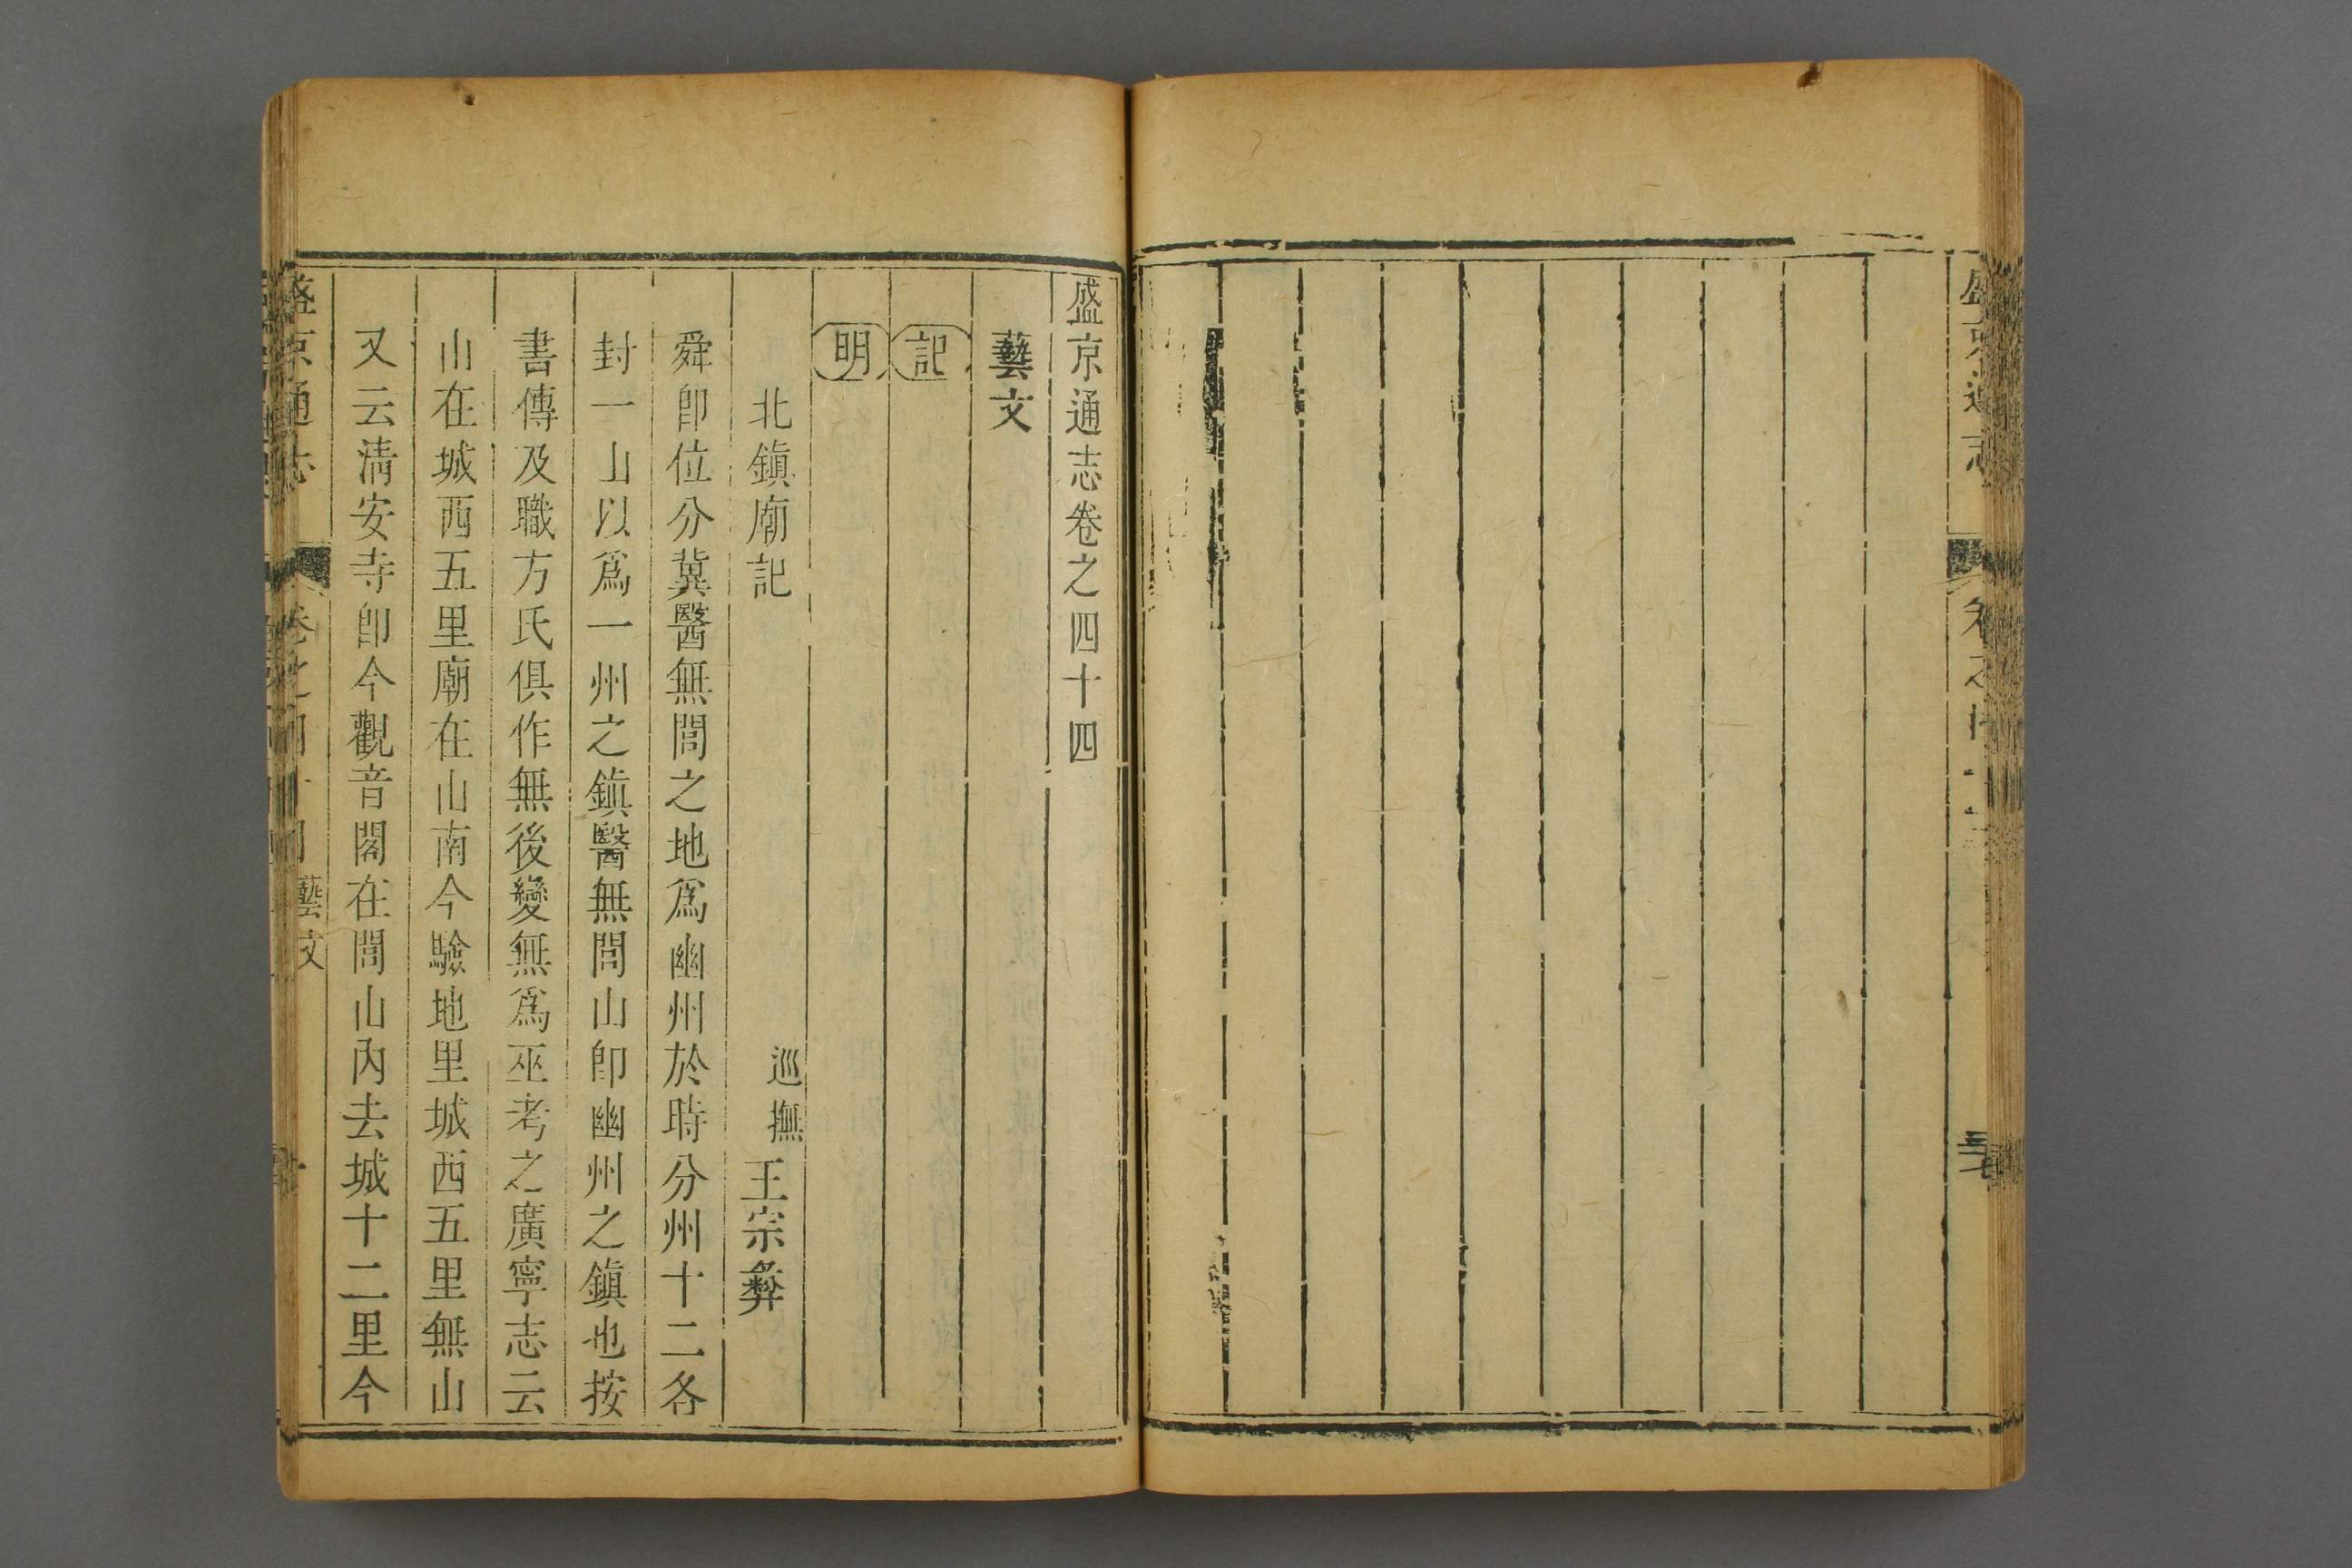 盛京通志卷之四十四
藝文
記
明
北鎮廟記 巡撫王宗彝
舜卽位分冀醫無閭之地爲幽州於時分州十二各
封一山以爲一州之鎮醫無閭山卽幽州之鎮也按
書傳及職方氏俱作無後變無爲巫考之廣寧志云
山在城西五里廟在山南今驗地里城西五里無山
又云淸安寺卽今觀音閣在閭山內去城十二里今
盛京通志 卷之四十四 藝文 一